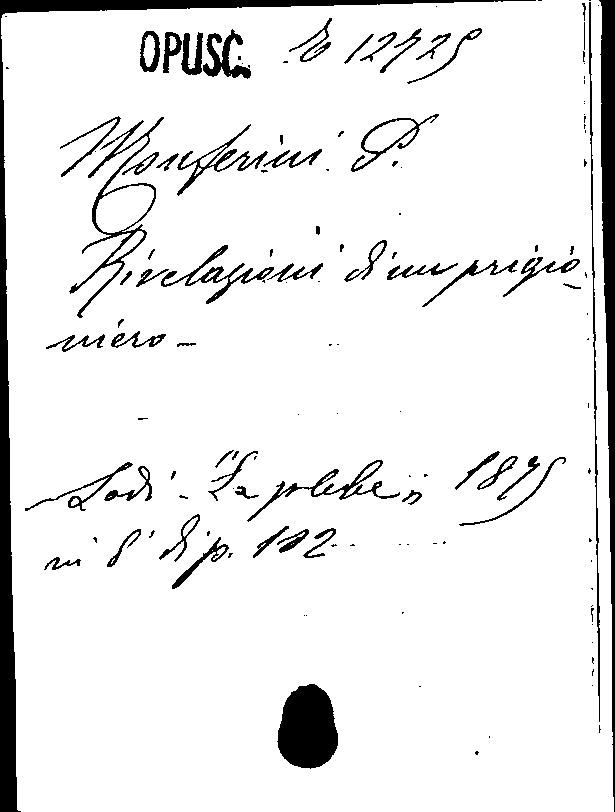 OPUSC. E 12725
Monferini P.
Rivelazioni di un prigio-
niero -
Lodi - "La plebe" 1875
in 8° di p. 102